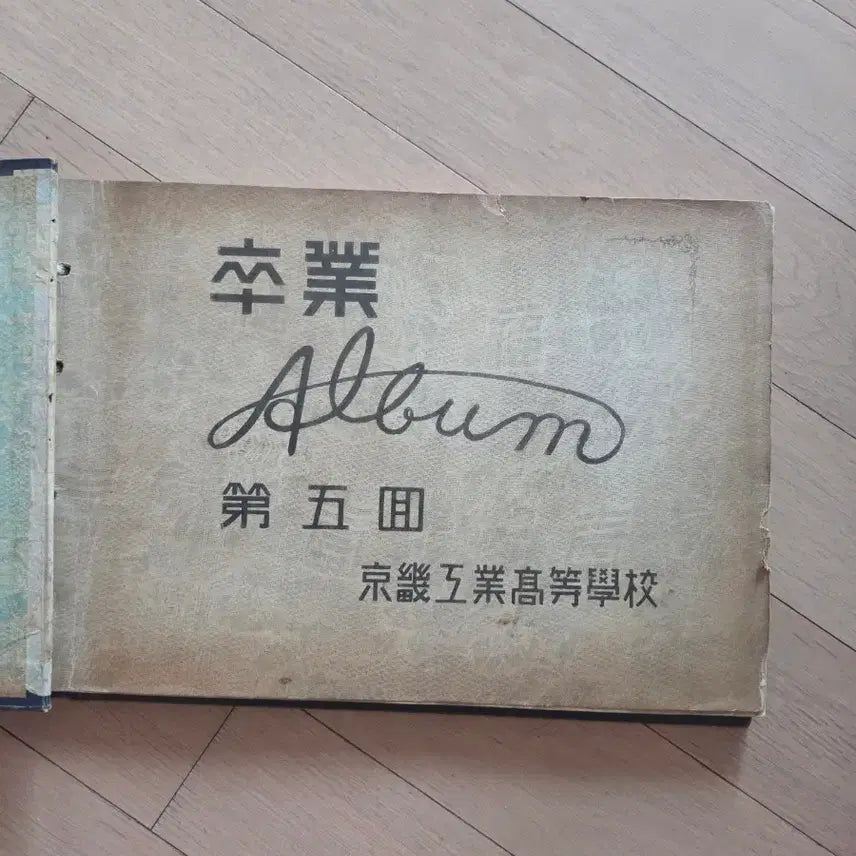 卒業
Album
第五回
京畿工業髙等學校